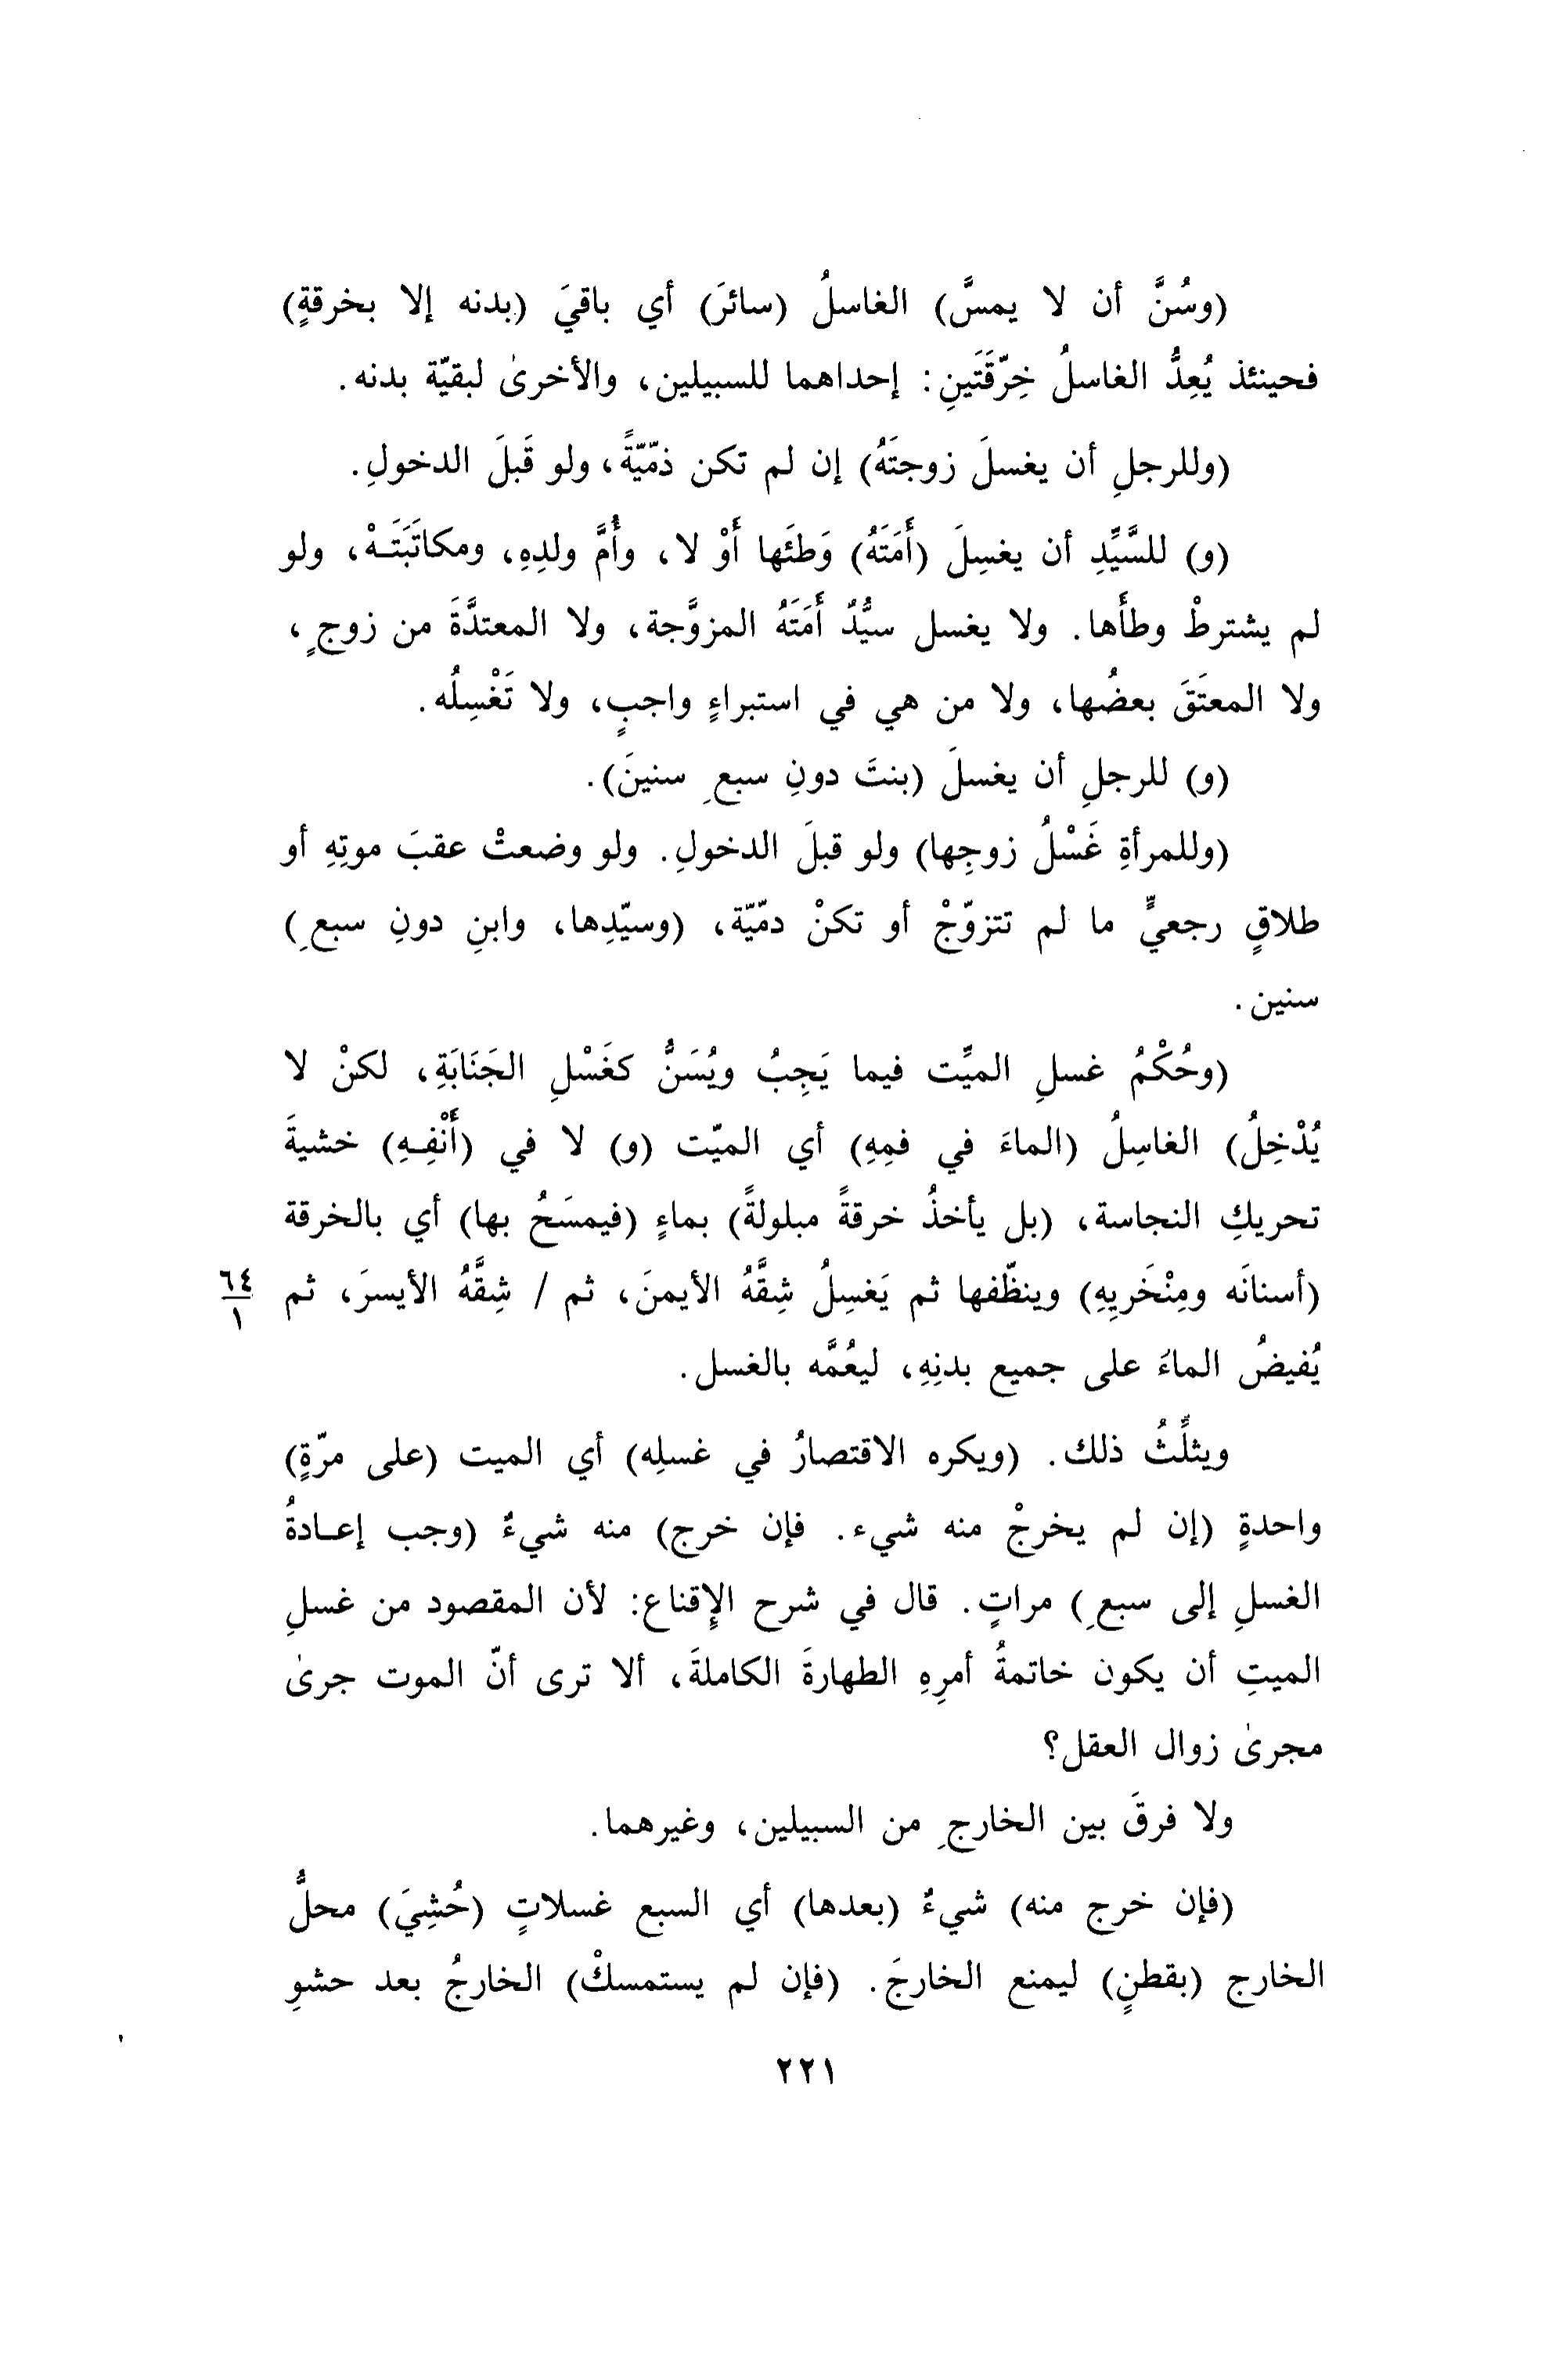 (وسُنَّ أن لا يمسَّ) الغاسلُ (سائرَ) أي باقيَ (بدنه إلا بخرقةٍ)
فحينئذ يُعِدُّ الغاسلُ خِرّقَتَينِ: إحداهما للسبيلين، والأخرىٰ لبقيّة بدنه.
(وللرجلِ أن يغسلَ زوجتَهُ) إن لم تكن ذمّيّةً، ولو قَبلَ الدخولِ.
(و) للسَّيِّدِ أن يغسِلَ (أَمَتَهُ) وَطئَها أَوْ لا، وأُمَّ ولدِهِ، ومكاتَبَتَـهْ، ولو
لم يشترطْ وطأَها. ولا يغسل سيُّدٌ أَمَتَهُ المزوَّجة، ولا المعتدَّةَ من زوجٍ،
ولا المعتَقَ بعضُها، ولا من هي في استبراءٍ واجبٍ، ولا تَغْسِلُه.
(و) للرجلِ أن يغسلَ (بنتَ دونِ سبعِ سنينَ).
(وللمرأةِ غَسْلُ زوجِها) ولو قبلَ الدخولِ. ولو وضعتْ عقبَ موتِهِ أو
طلاقٍ رجعيٍّ ما لم تتزوّجْ أو تكنْ دمّيّة، (وسيّدِها، وابنِ دونِ سبعِ)
سنين.
(وحُكْمُ غسلِ الميِّت فيما يَجِبُ ويُسَنُّ كغَسْلِ الجَنَابَةِ، لكنْ لا
يُدْخِلُ) الغاسِلُ (الماءَ في فمِهِ) أي الميّت (و) لا في (أَنْفِـهِ) خشيةَ
تحريكِ النجاسة، (بل يأخذُ خرقةً مبلولةً) بماءٍ (فيمسَحُ بها) أي بالخرقة
(أسنانَه ومِنْخَريِهِ) وينظّفها ثم يَغسِلُ شِقَّهُ الأيمنَ، ثم / شِقَّهُ الأيسرَ، ثم ٦٤/١
يُفيضُ الماءَ على جميع بدنِهِ، ليعُمَّه بالغسل.
ويثلِّثُ ذلك. (ويكره الاقتصارُ في غسلِه) أي الميت (على مرّةٍ)
واحدةٍ (إن لم يخرجْ منه شيء. فإن خرج) منه شيءٌ (وجب إعـادةُ
الغسلِ إلى سبعِ) مراتٍ. قال في شرح الإقناع: لأن المقصود من غسلِ
الميتِ أن يكون خاتمةُ أمرِهِ الطهارةَ الكاملةَ، ألا ترى أنّ الموت جرىٰ
مجرىٰ زوال العقل؟
ولا فرقَ بين الخارجِ من السبيلين، وغيرهما.
(فإن خرج منه) شيءٌ (بعدها) أي السبع غسلاتٍ (حُشِيَ) محلُّ
الخارج (بقطنٍ) ليمنع الخارجَ. (فإن لم يستمسكْ) الخارجُ بعد حشوِ
٢٢١